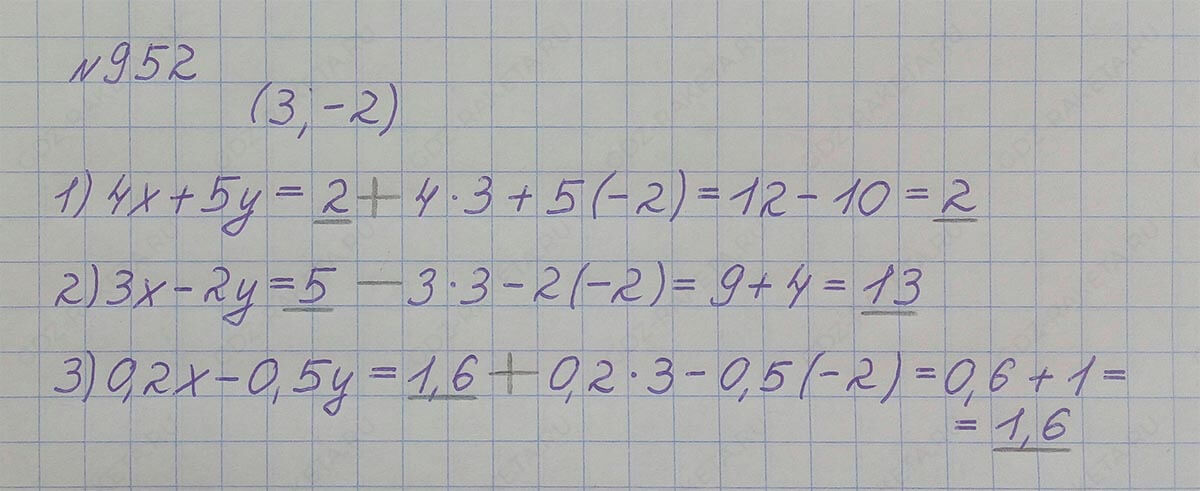 №952
(3; -2)
1) 4x + 5y = 2 + 4·3 + 5(-2) = 12 - 10 = 2
2) 3x - 2y = 5 — 3·3 - 2(-2) = 9 + 4 = 13
3) 0,2x - 0,5y = 1,6 + 0,2·3 - 0,5(-2) = 0,6 + 1 =
= 1,6